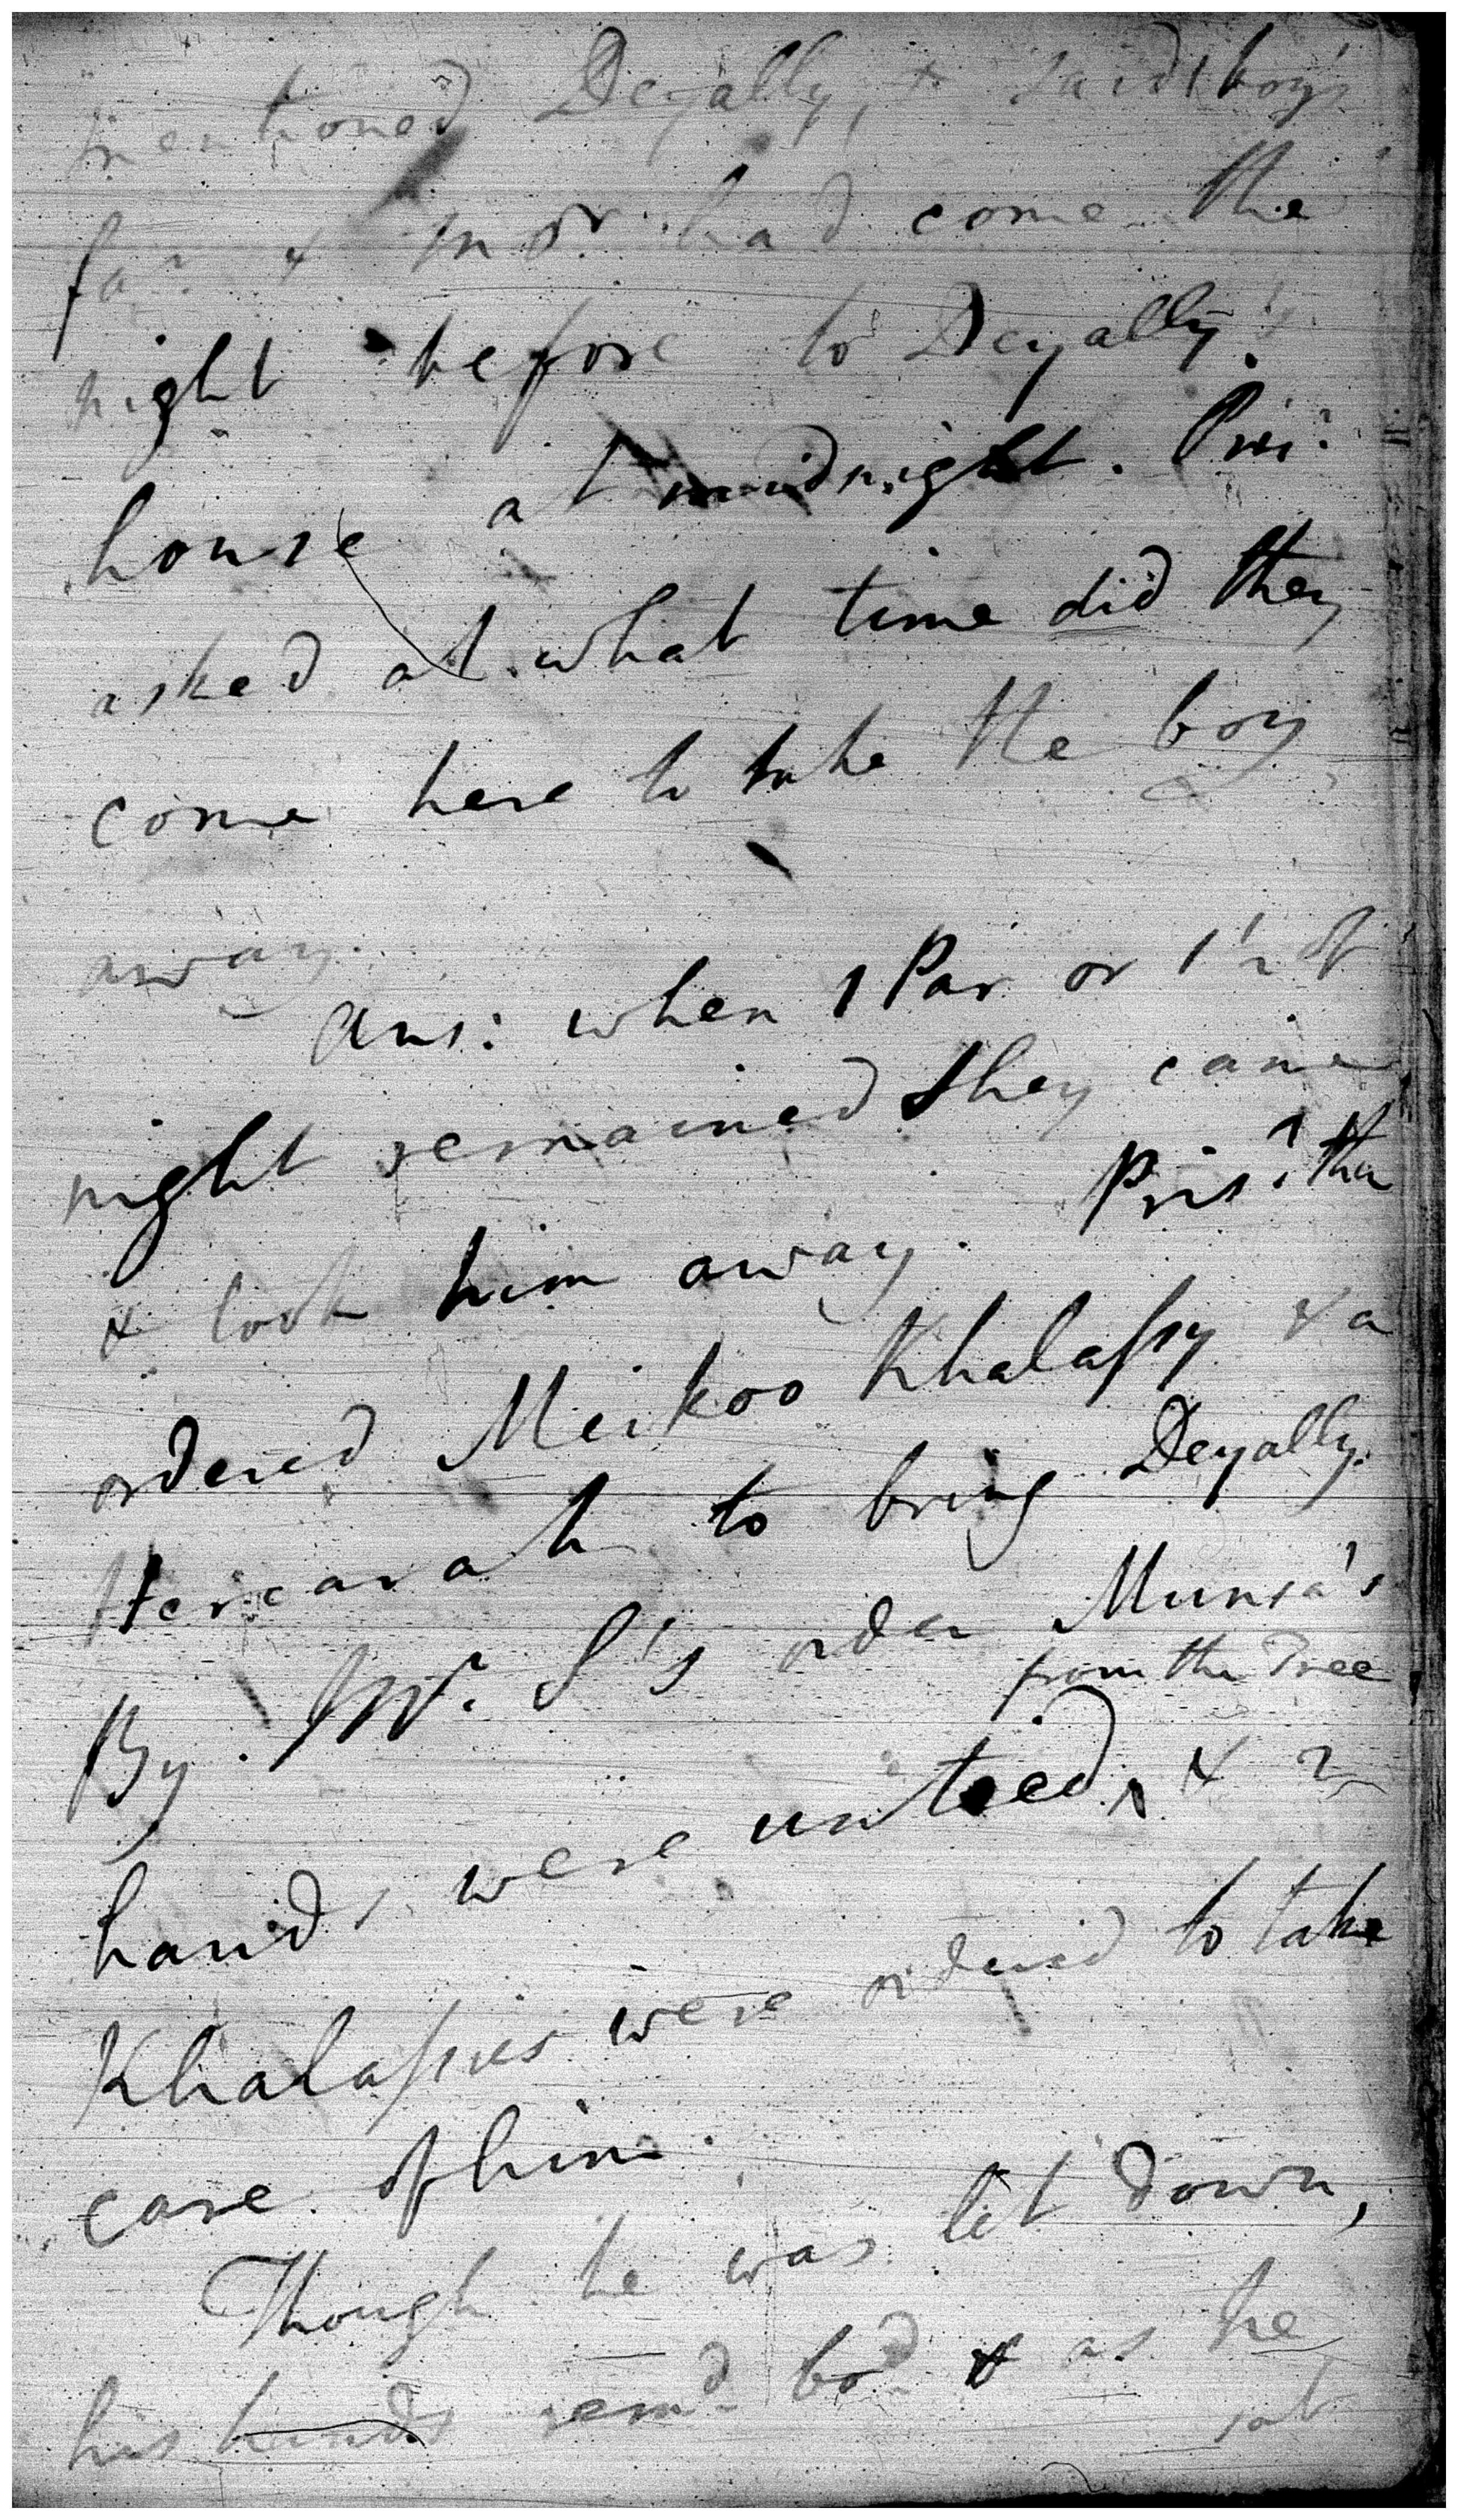 mentioned Deyally, & said boy's
far & mor had come the
night before to Deyally's
house at midnight. Pris:r
asked at what time did they
come here to take the boy
away.
Ans: when 1 Par or 1½ of
night remained they came
& took him away. Pris:r then
ordered Meikoo Khalassy & a
Hercarah to bring Deyally.
By Mr. S's order Munsa's
from the Tree
hands were untied, & 2
Khalassies were ordered to take
care of him.
Though he was let down,
his hands remd bod & as he
sat